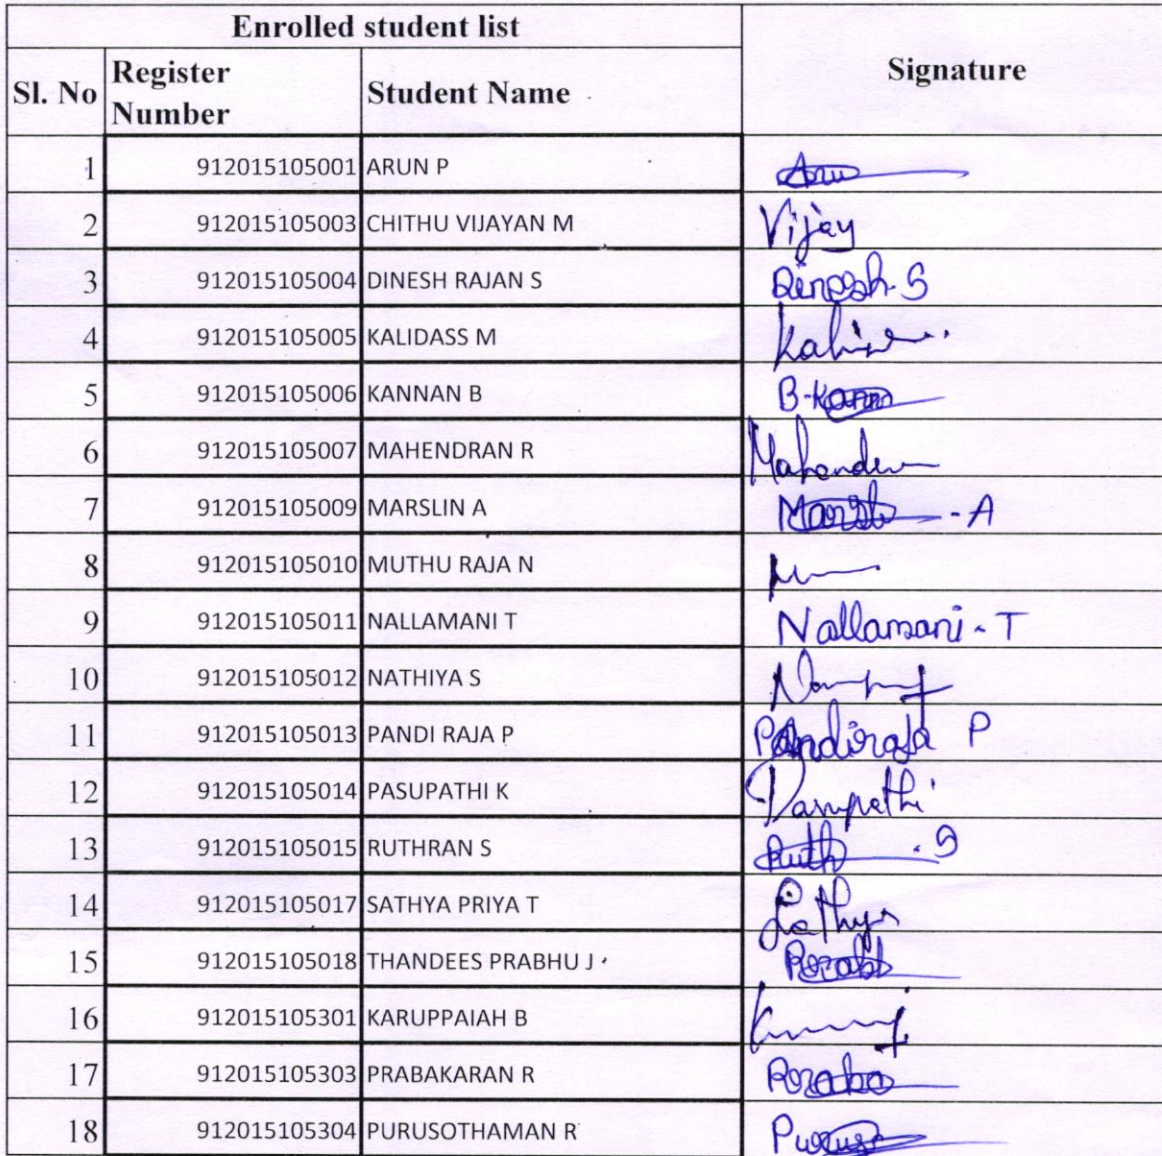 Enrolled student list
Signature
Sl. No Register Number Student Name
1 912015105001 ARUN P Arun
2 912015105003 CHITHU VIJAYAN M Vijay
3 912015105004 DINESH RAJAN S Dinesh. S
4 912015105005 KALIDASS M
5 912015105006 KANNAN B B.Kanna
6 912015105007 MAHENDRAN R
7 912015105009 MARSLIN A - A
8 912015105010 MUTHU RAJA N
9 912015105011 NALLAMANI T Nallamani - T
10 912015105012 NATHIYA S
11 912015105013 PANDI RAJA P Pandiraja P
12 912015105014 PASUPATHI K Pasupathi
13 912015105015 RUTHRAN S Ruth . S
14 912015105017 SATHYA PRIYA T Sathya
15 912015105018 THANDEES PRABHU J
16 912015105301 KARUPPAIAH B
17 912015105303 PRABAKARAN R
18 912015105304 PURUSOTHAMAN R